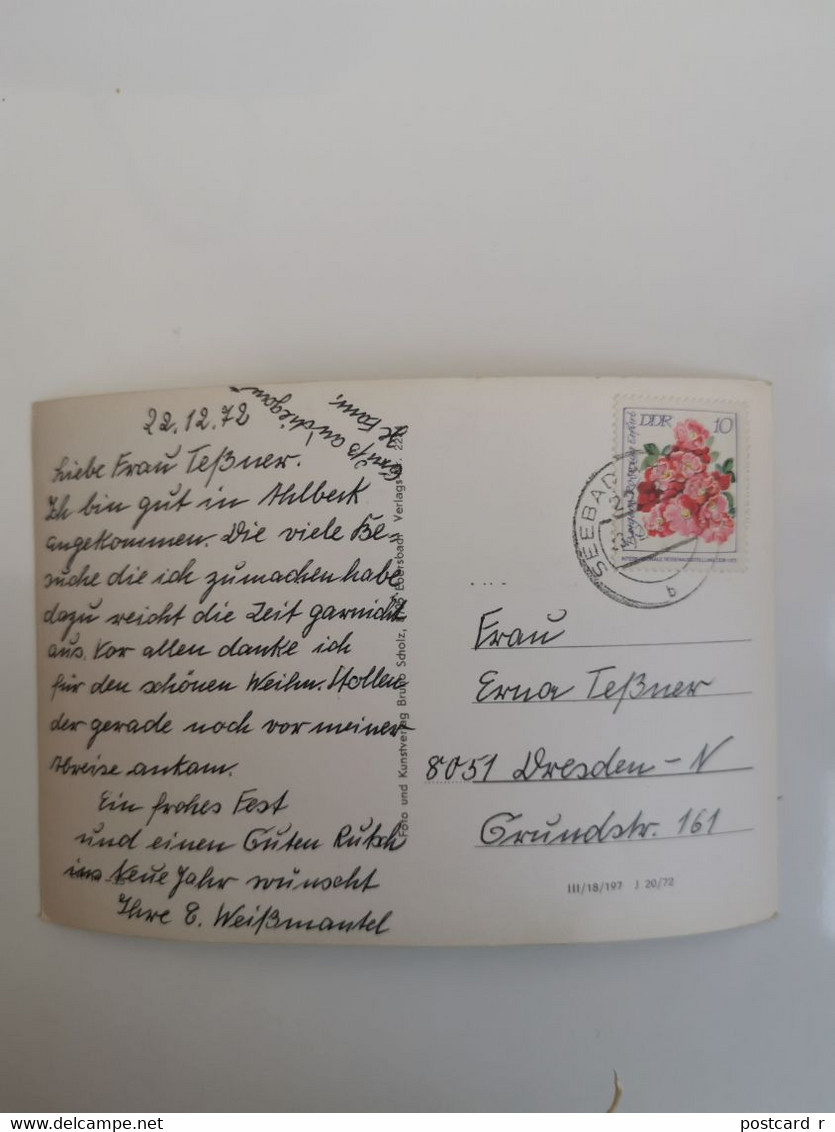 22.12.72
Liebe Frau Teßner.
Ich bin gut in Ahlbeck
angekommen. Die viele Be-
suche die ich zumachen habe
dazu reicht die Zeit garnicht
aus. Vor allen danke ich
für den schönen Weihn. Stollen
der gerade noch vor meiner
Abreise ankam.
Ein frohes Fest
und einen Guten Rutsch
ins Neue Jahr wünscht
Ihre E. Weißmantel
Gruß an
Foto und Kunstverlag Bruno Scholz, Ebersbach Verlags-Nr. 22
DDR 10
SEEBAD
b
Frau
Erna Teßner
8051 Dresden-N
Grundstr. 161
III/18/197 J 20/72
www.delcampe.net
postcard_r